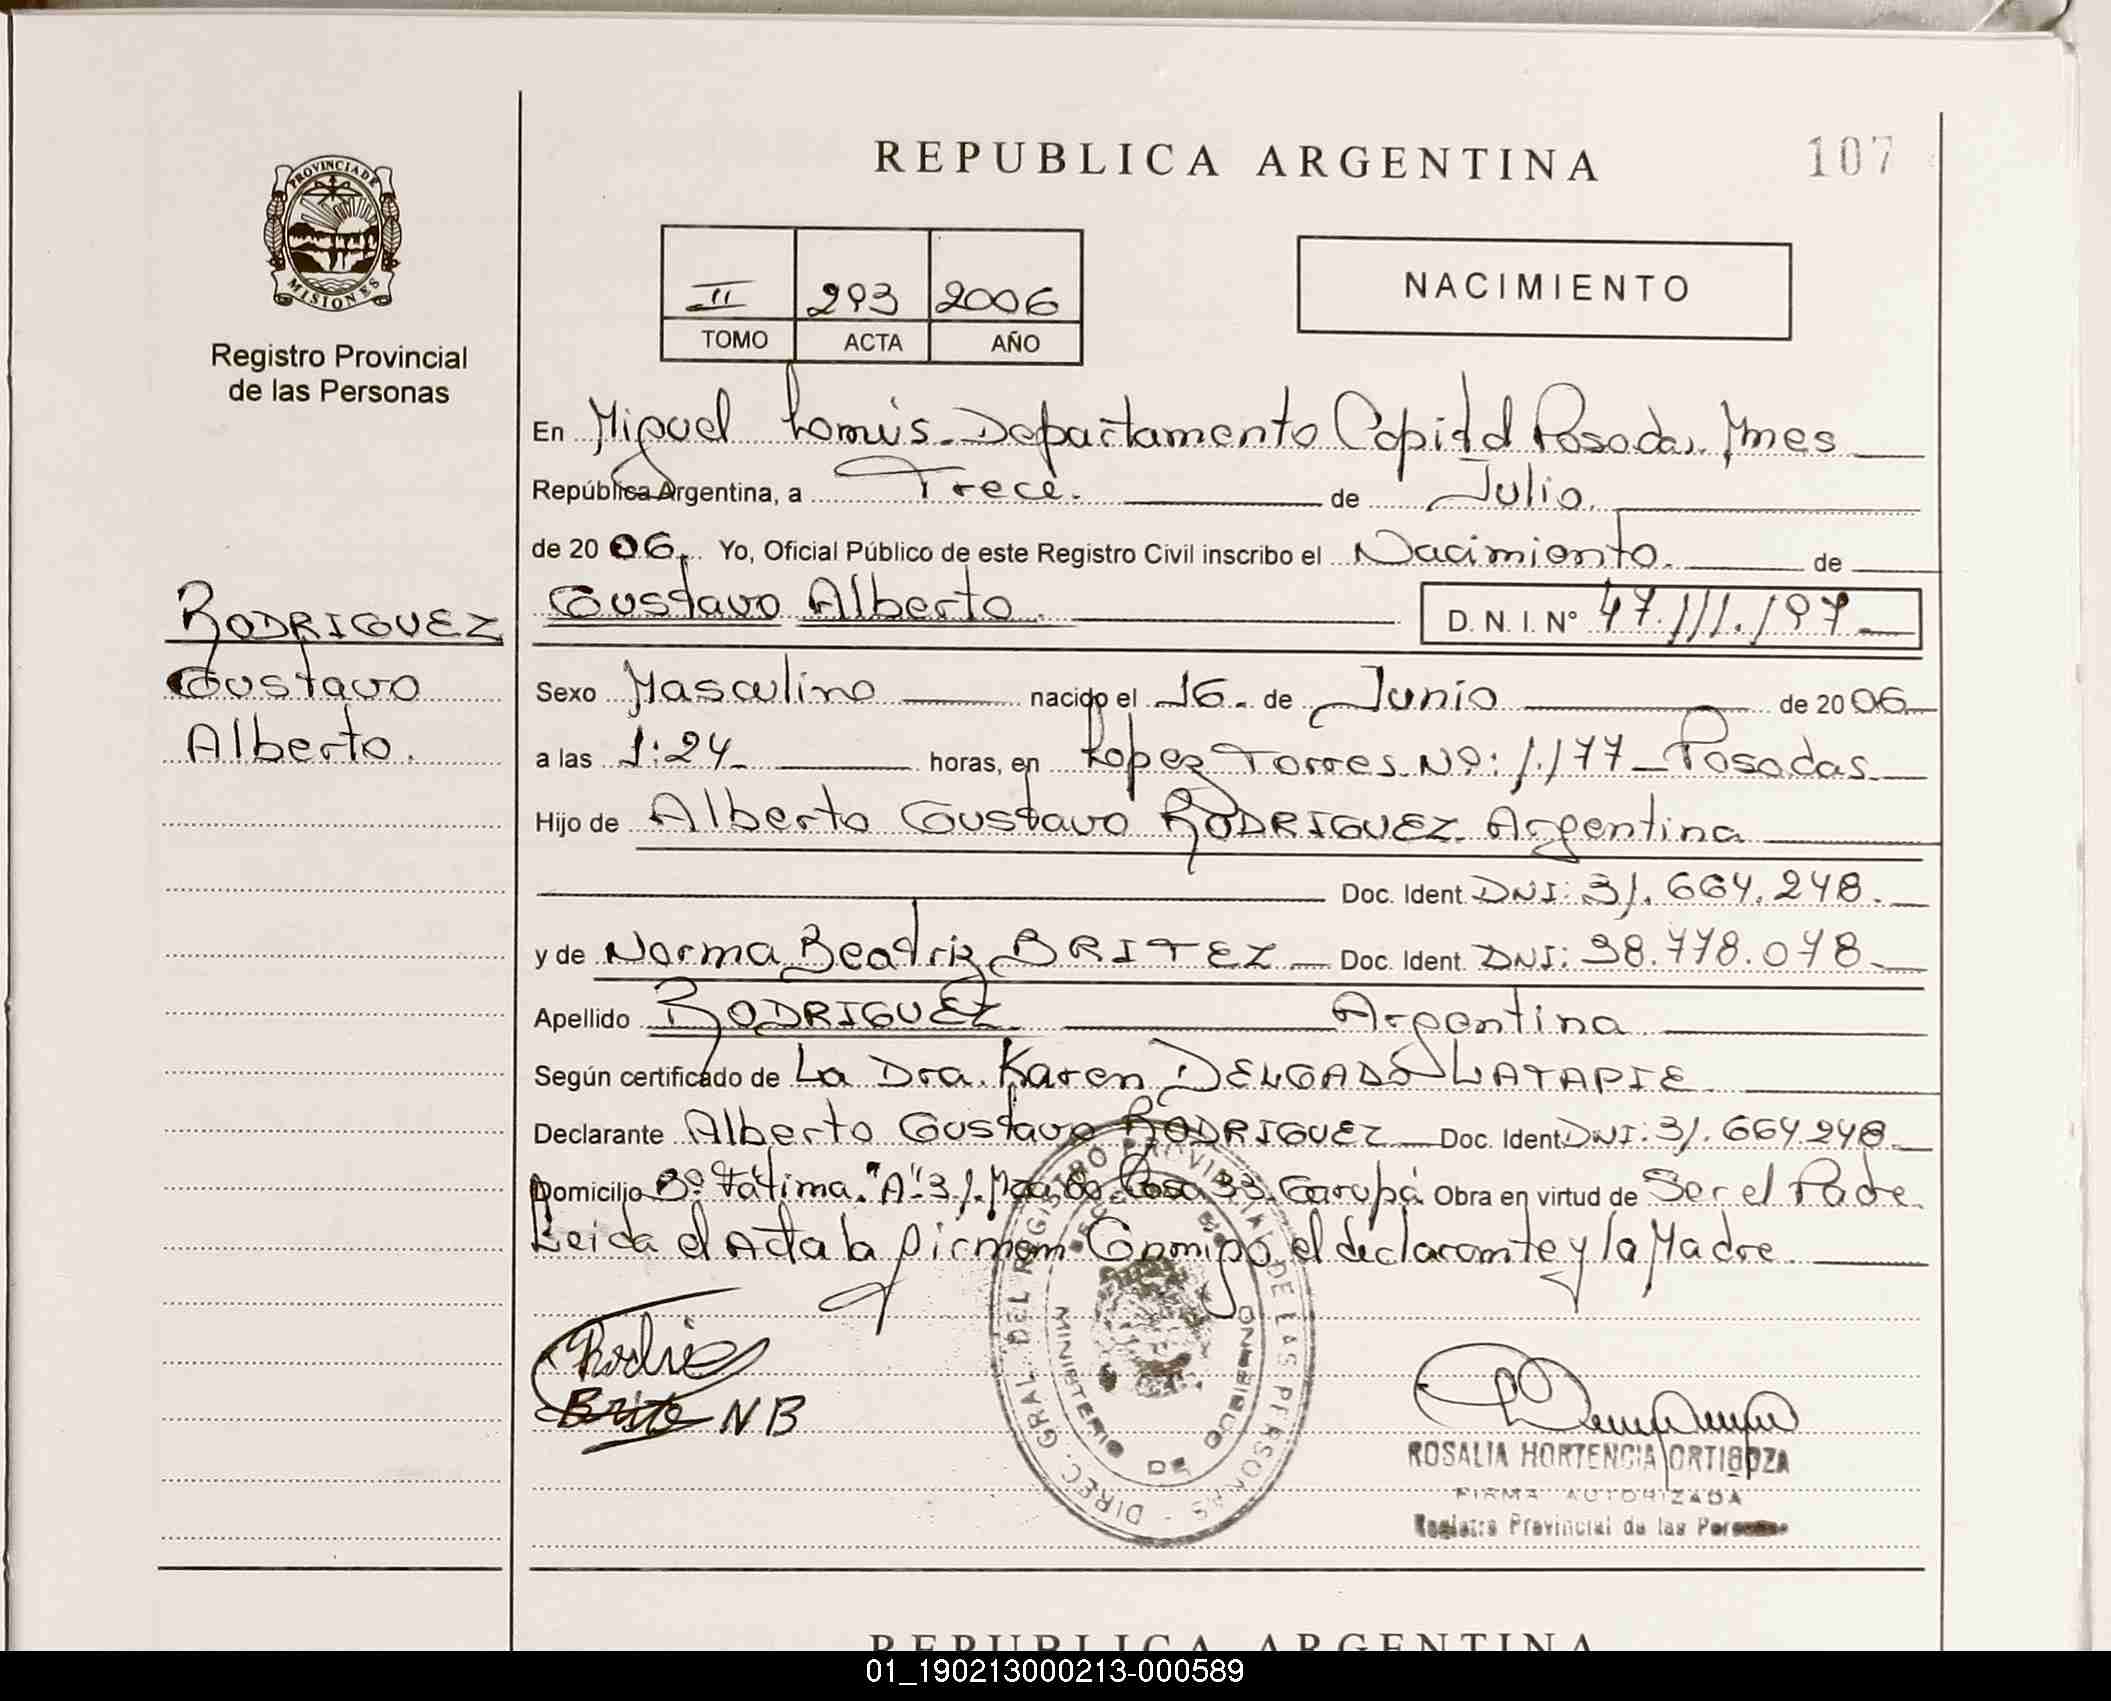 REPUBLICA ARGENTINA
107
PROVINCIA DE
MISIONES
Registro Provincial
de las Personas
II 293 2006
TOMO ACTA AÑO
NACIMIENTO
En Miguel Lanús. Departamento Capital Posadas. Mnes
República Argentina, a Trece. de Julio.
de 2006. Yo, Oficial Público de este Registro Civil inscribo el Nacimiento. de
Gustavo Alberto. D. N. I. Nº 47.111.197
RODRIGUEZ
Gustavo
Alberto.
Sexo Masculino nacido el 16. de Junio de 2006
a las 1:24 horas, en Lopez Torres Nº: 1.177 Posadas
Hijo de Alberto Gustavo RODRIGUEZ. Argentina
Doc. Ident. DNI: 31.664.248.
y de Norma Beatriz BRITEZ Doc. Ident. DNI: 38.778.078
Apellido RODRIGUEZ Argentina
Según certificado de La Dra. Karen DELGADO LATAPIE
Declarante Alberto Gustavo RODRIGUEZ Doc. Ident. DNI: 31.664.248
Domicilio Bº. Fátima. "A" 31. Mza, 80. Casa 33. Garupá Obra en virtud de Ser el Padre
Leida el Acta la firman Conmigo el declarante y la Madre.
DIREC. GRAL. DEL REGISTRO PROVINCIAL DE LAS PERSONAS
MINISTERIO DE GOBIERNO
NB
ROSALIA HORTENCIA ORTIGOZA
FIRMA AUTORIZADA
Registro Provincial de las Personas
REPUBLICA ARGENTINA
01_190213000213-000589